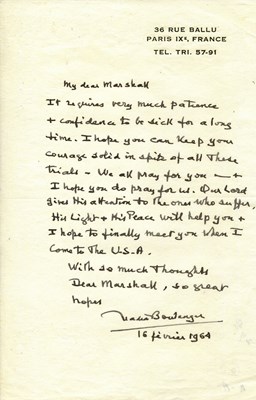 36 RUE BALLU
PARIS IXe, FRANCE
TEL. TRI. 57-91
My dear Marshall
It requires very much patience
+ confidence to be sick for a long
time. I hope you can keep your
courage solid in spite of all these
trials - We all pray for you - +
I hope you do pray for us. Our Lord
gives His attention to the ones who suffer,
His Light + His Peace will help you +
I hope to finally meet you when I
come to the U.S.A.
With so much thoughts
Dear Marshall, so great
hopes
Nadia Boulanger
16 février 1964